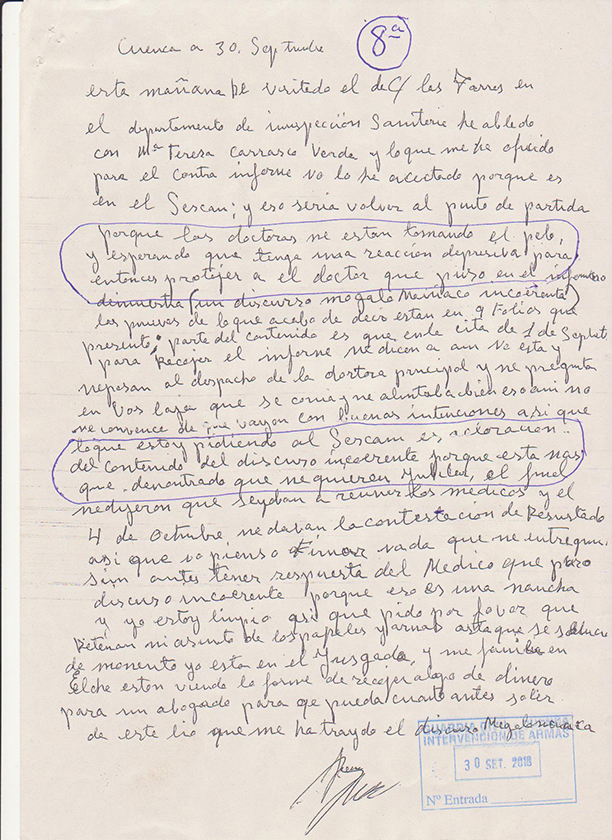 8ª
Cuenca a 30. Septiembre
esta mañana he vesitado el de C/ las Torres en
el departamento de innspección Sanitaria he ablado
con Mª Teresa Carrasco Verde y loque me ha ofrecido
para el contra informe no lo he acectado porque es
en el Sescam; y eso seria volver al punto de partida
porque las doctoras me estan tomando el pelo,
y esperando que tenga una reacción depresiva para
entonces protijer a el doctor que puso en el informe
(un discurso mogalo Maniaco incoerente)
las pruevas de loque acabo de decir estan en 9 Folios que
presente; parte del contenido es que en la cita de 1 de Septi
para Recojer el informe me dicen a aun no esta y
me pasan al despacho de la doctora principal y me pregunta
en Vos baja que se comia y me alintaba bien eso a mi no
me convence de que vayan con buenas intenciones asi que
loque estoy pidiendo al Sescam es valoracion
del contenido del discurso incoerente porque esta mas
que demontrado que me quieren Jubilar, el final
me dijeron que se yban a reuner los medicos y el
4 de Octubre, me davan la contestacion de Resustado
asi que no pienso firmar nada que me entreguen
sin antes tener respuesta del Medico que puso
discurso incoerente porque eso es una mancha
y yo estoy limpio asi que pido por favor que
Retenan mi asunto de los papeles y armas asta que se soluci
de momento yo esta en el Jusgado, y me familia en
Elche estan viendo la forma de recojer algo de dinero
para un abogado para qe pueda cuanto antes salir
de este lio que me ha traydo el discurso Megalomaniaca
INTERVENCIÓN DE ARMAS
30 SET. 2016
Nº Entrada